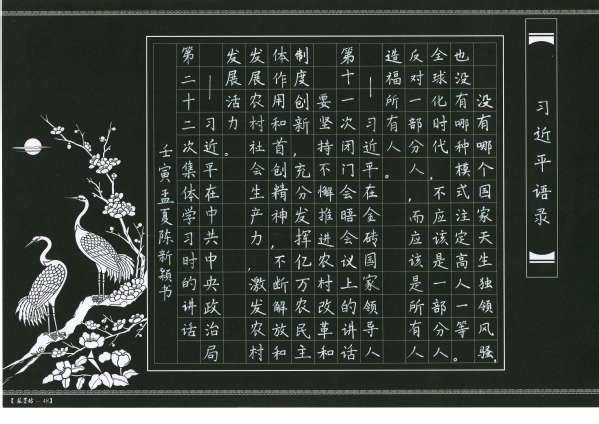 习近平语录
没有哪个国家天生独领风骚，
也没有哪种模式注定高人一等。
全球化时代，不应该是一部分人
反对一部分人，而应该是所有人
造福所有人。
——习近平在金砖国家领导人
第十一次闭门会晤会议上的讲话
要坚持不懈推进农村改革和
制度创新，充分发挥亿万农民主
体作用和首创精神，不断解放和
发展农村社会生产力，激发农村
发展活力。
——习近平在中共中央政治局
第二十二次集体学习时的讲话
壬寅孟夏陈新颖书